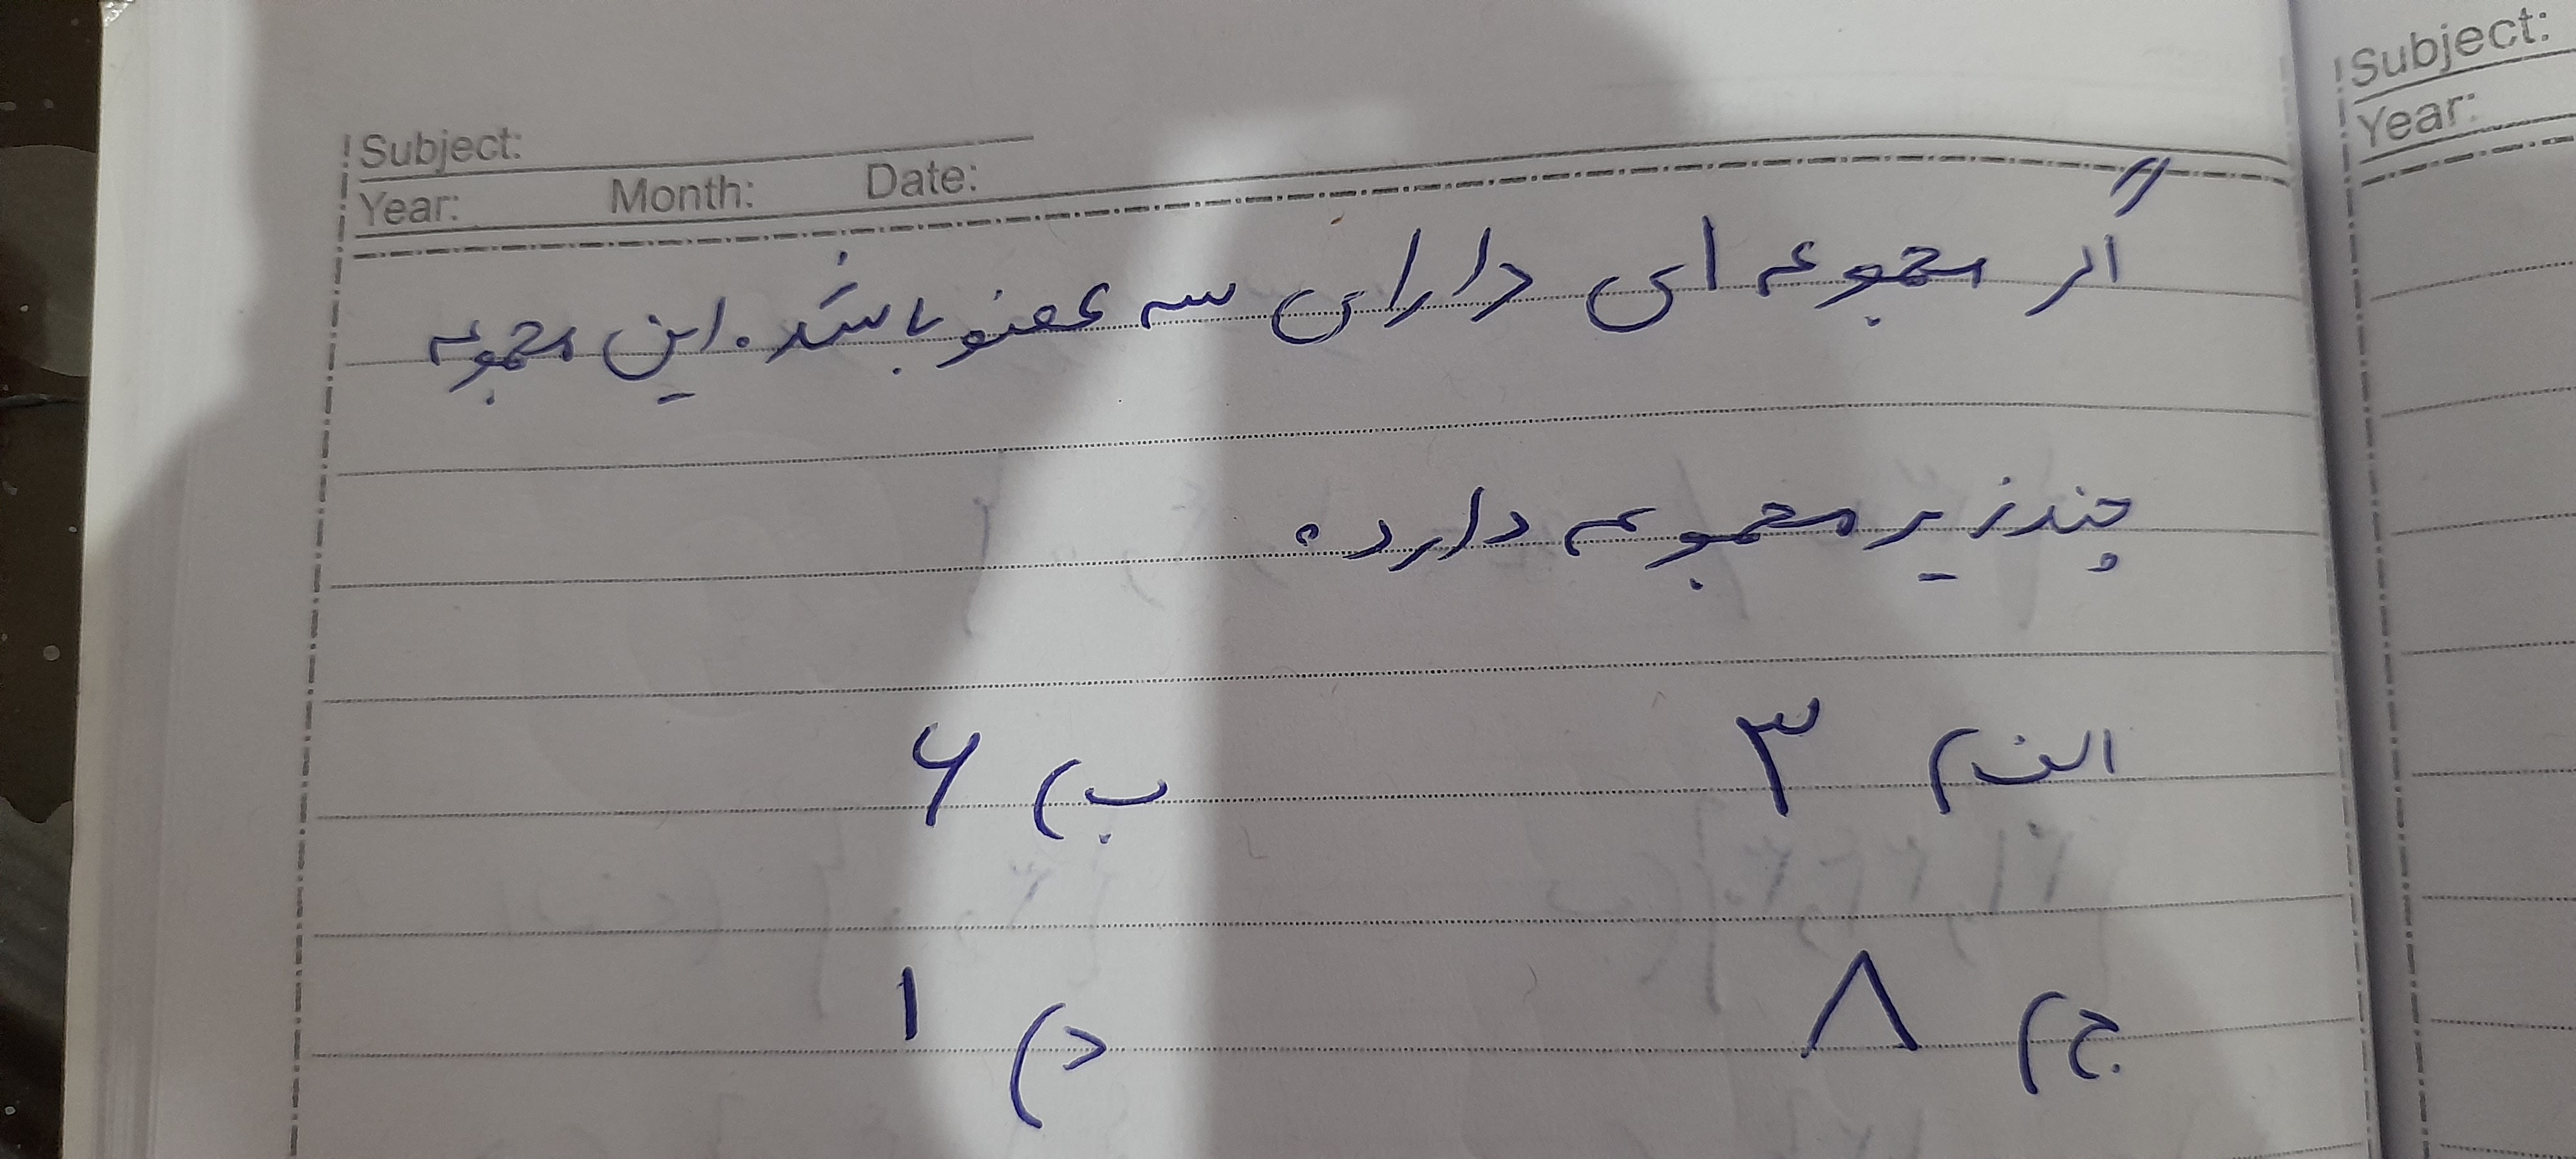 Subject:
Year: Month: Date:
اگر مجموعه ای دارای سه عضو باشد. این مجموعه
چند زیر مجموعه دارد.
الف) ۳ ب) ۶
ج) ۸ د) ۱
Subject:
Year: